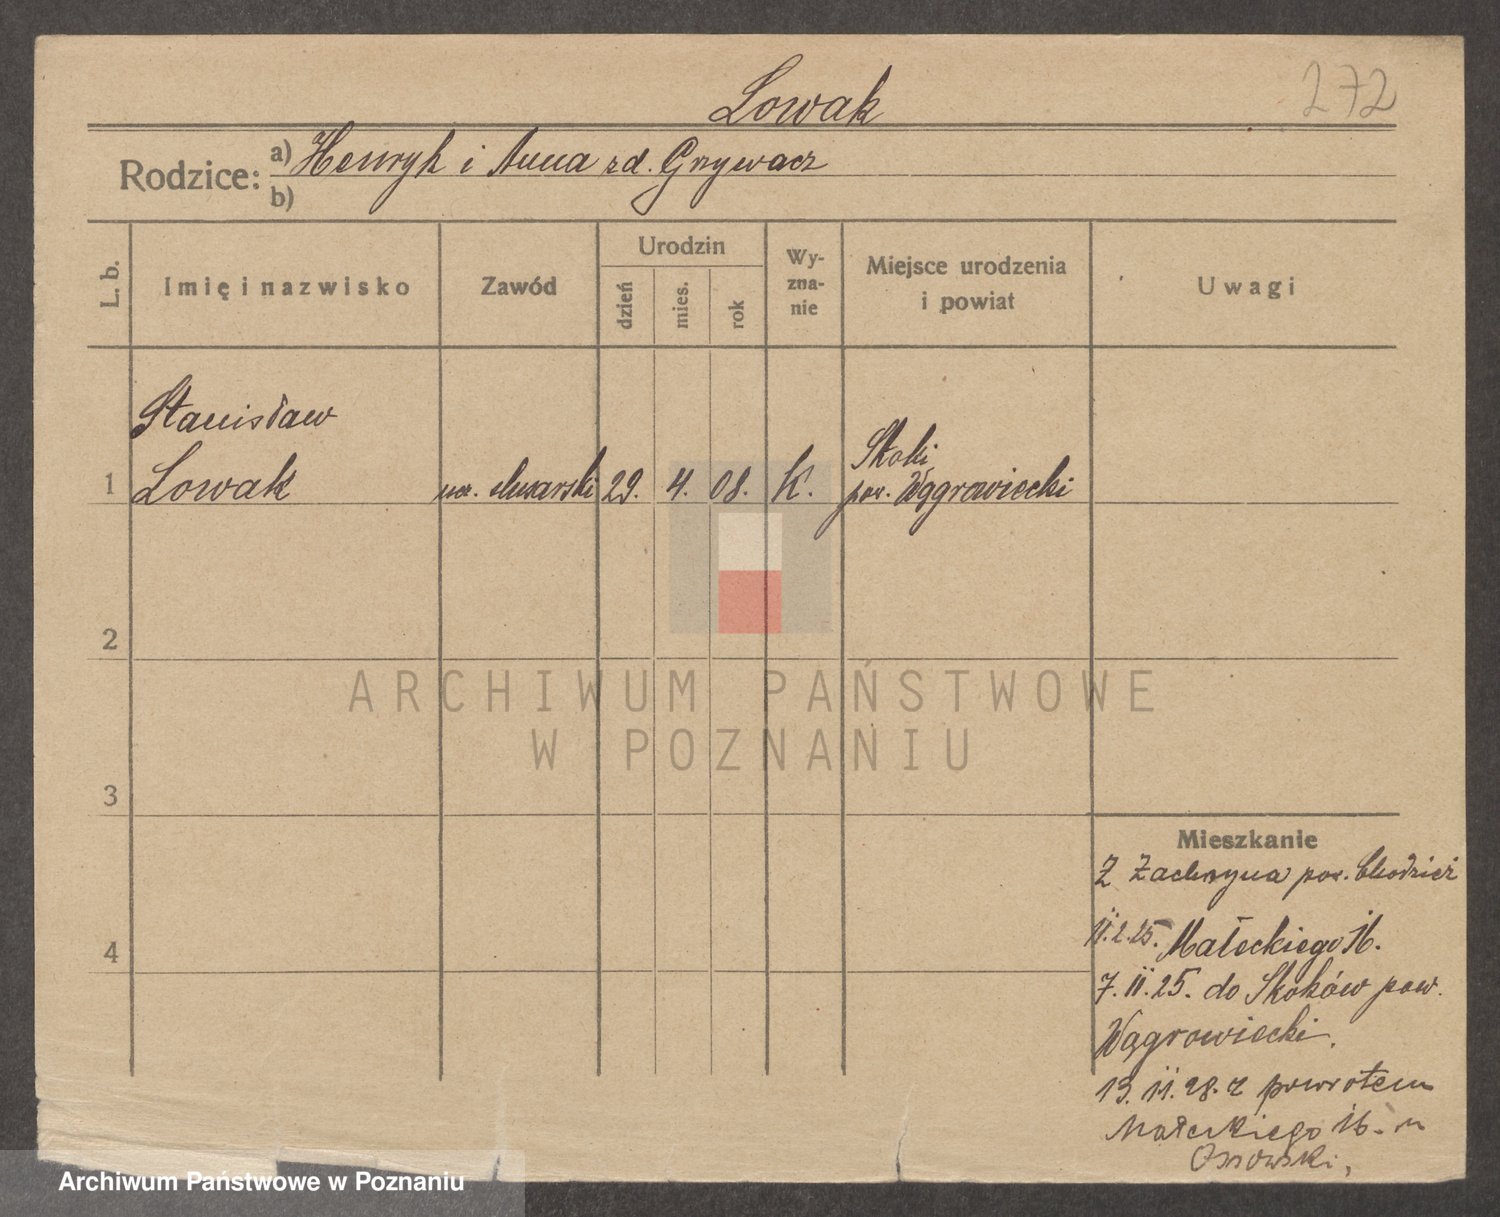 Lowak
272
Rodzice:
a) Henryk i Anna zd. Grzywacz
b)
L. b.
Imię i nazwisko
Zawód
Urodzin
dzień
mies.
rok
Wy-
zna-
nie
Miejsce urodzenia
i powiat
Uwagi
Stanisław
Skoki
1 Lowak ucz. ślusarski 29. 4. 08. K. pow. Wągrowiecki
2
3
4
ARCHIWUM PAŃSTWOWE
W POZNANIU
Mieszkanie
Z pow. Chodzież
Małeckiego 16.
7. II. 25. do Skoków pow.
Wągrowiecki.
13. 11. 28. z powrotem
Małeckiego 16.
Ossowski,
Archiwum Państwowe w Poznaniu